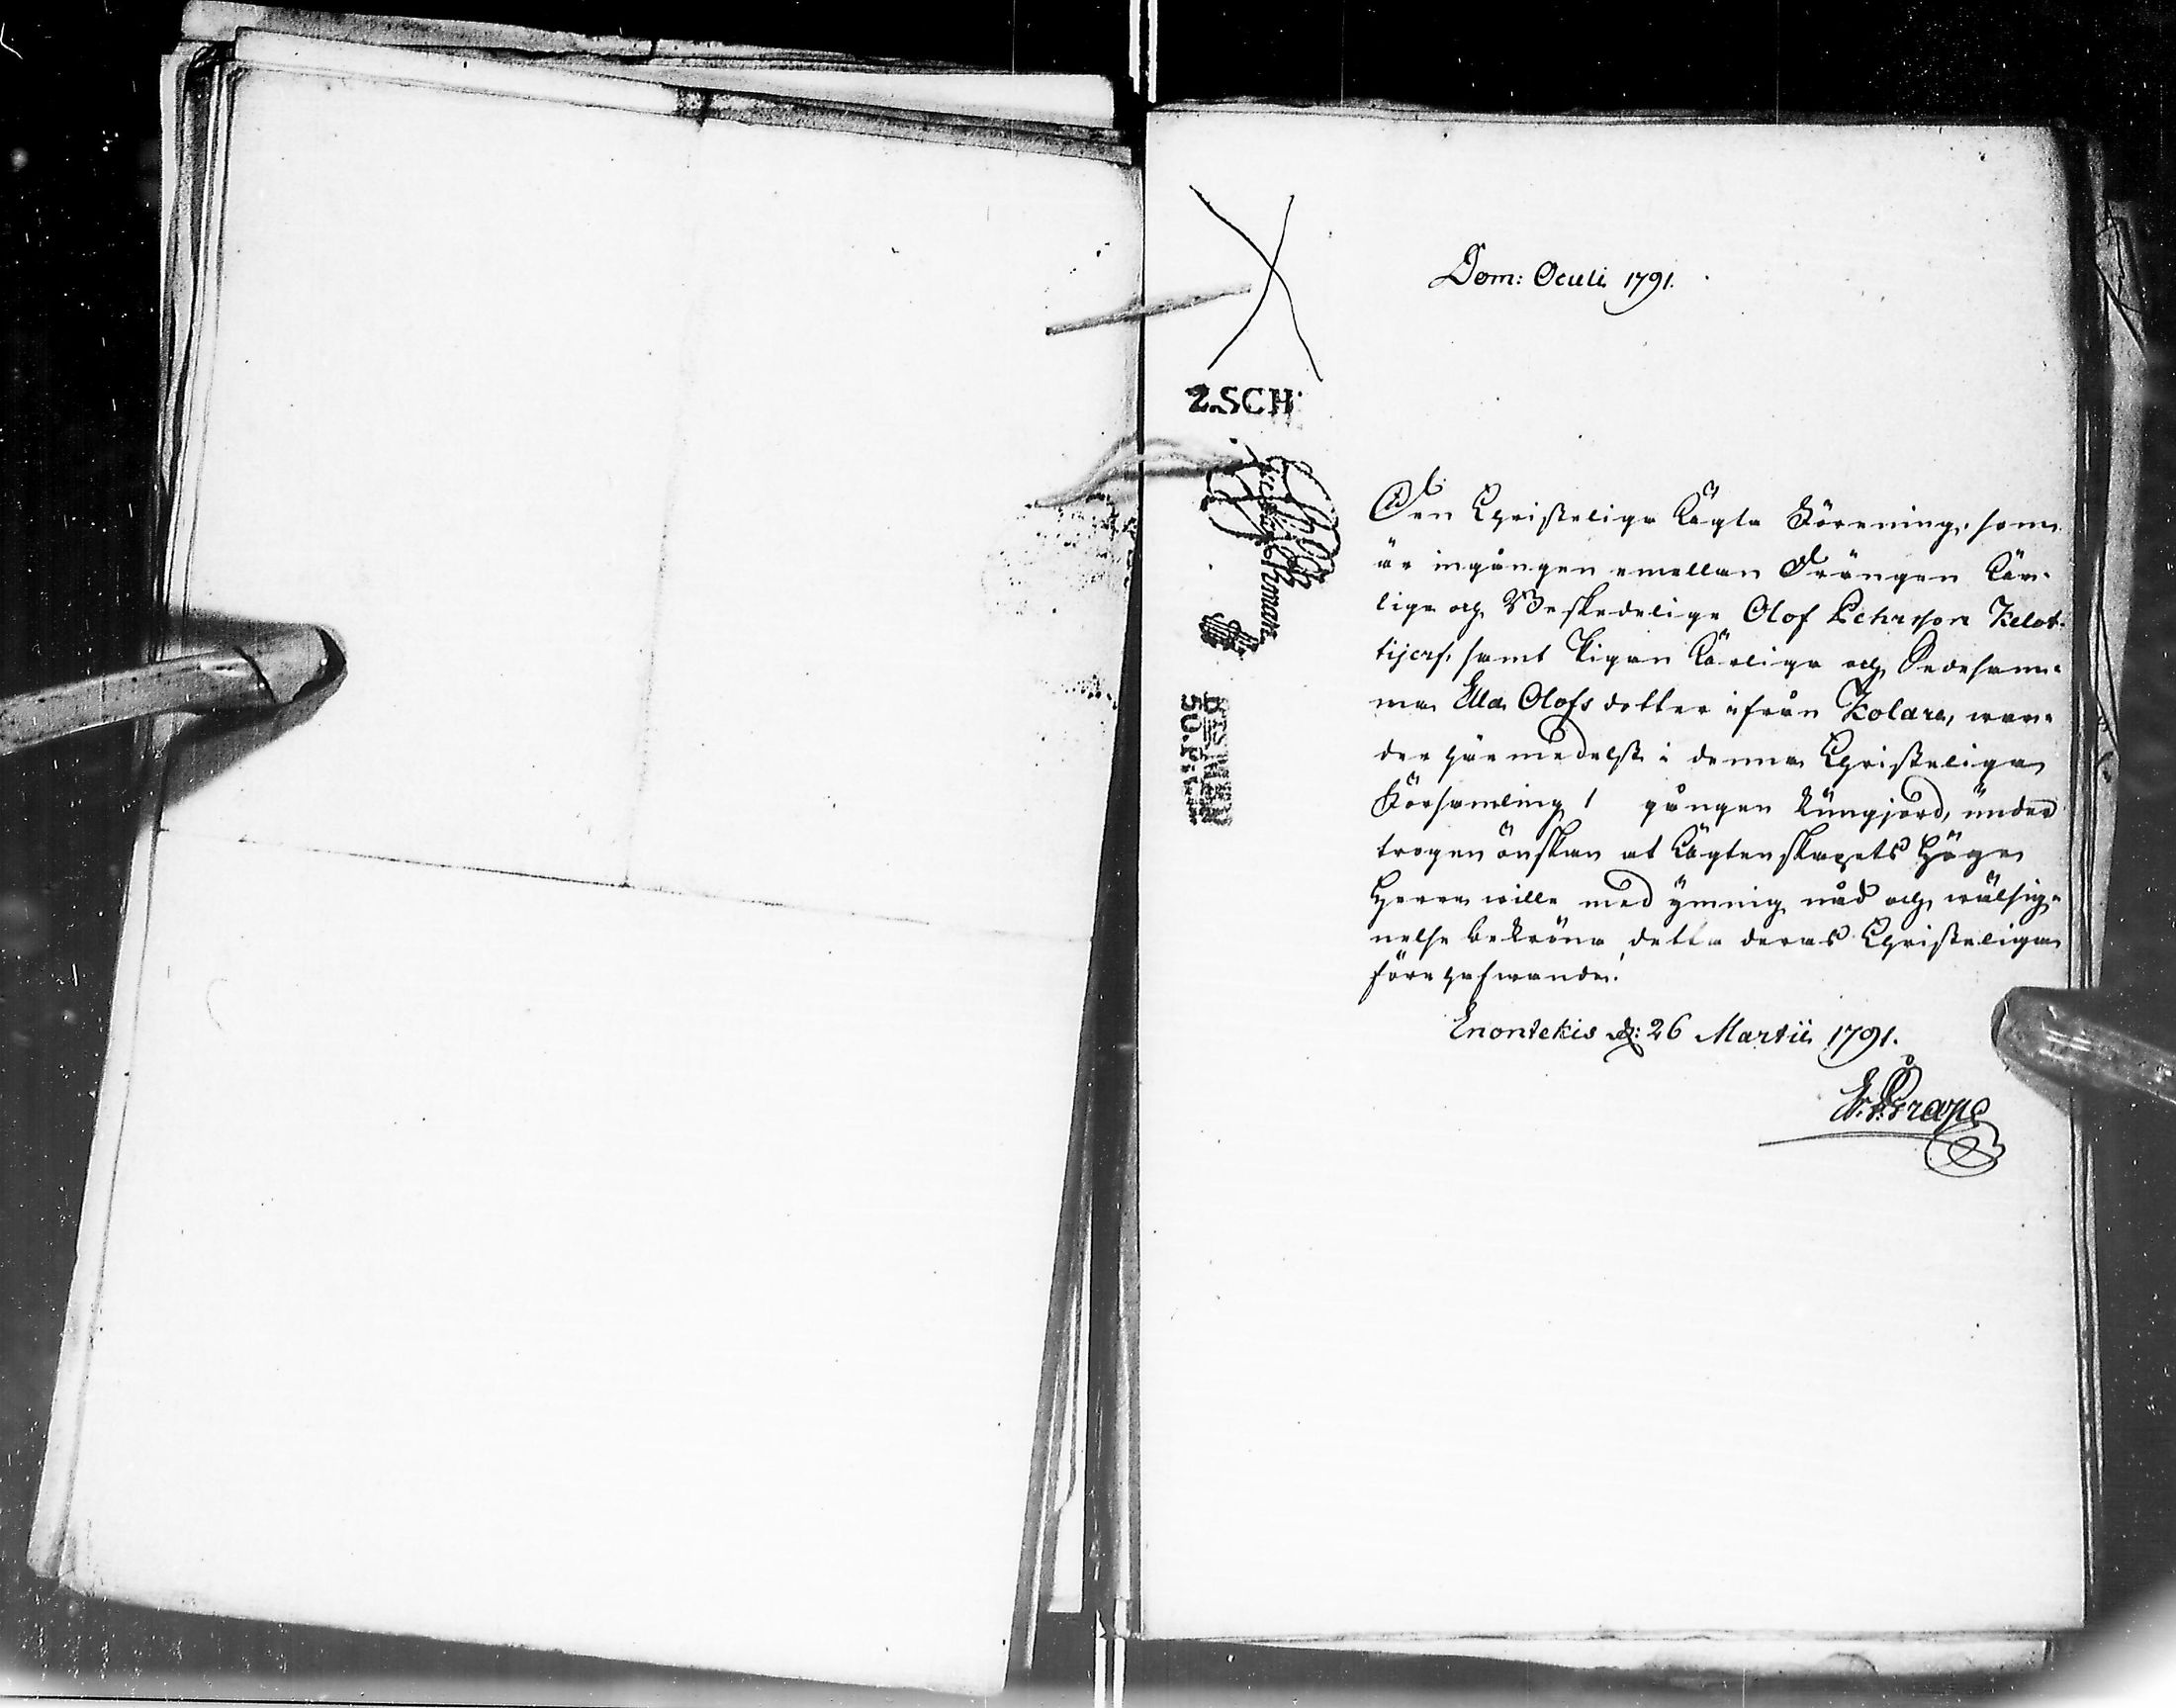 Dom: Oculi 1791.
2.SCH
Den Christelige Ägta Förening, som
är ingången emellan Drängen Är-
lige och Beskedelige Olof Pehrson Kelot-
tijerf, samt Pigan Ärliga och Sedesam-
ma Ella Olofs dotter ifrån Kolare, war-
der härmedelst i denna Christeliga
Församling 1 gången kungjord, under
trogen önskan at Ägtenskapets Höge
Herre wille med ymnig nåd och wälsig-
nelse bekröna detta deras Christeliga
förehafwande.
Enontekis d: 26 Martii 1791.